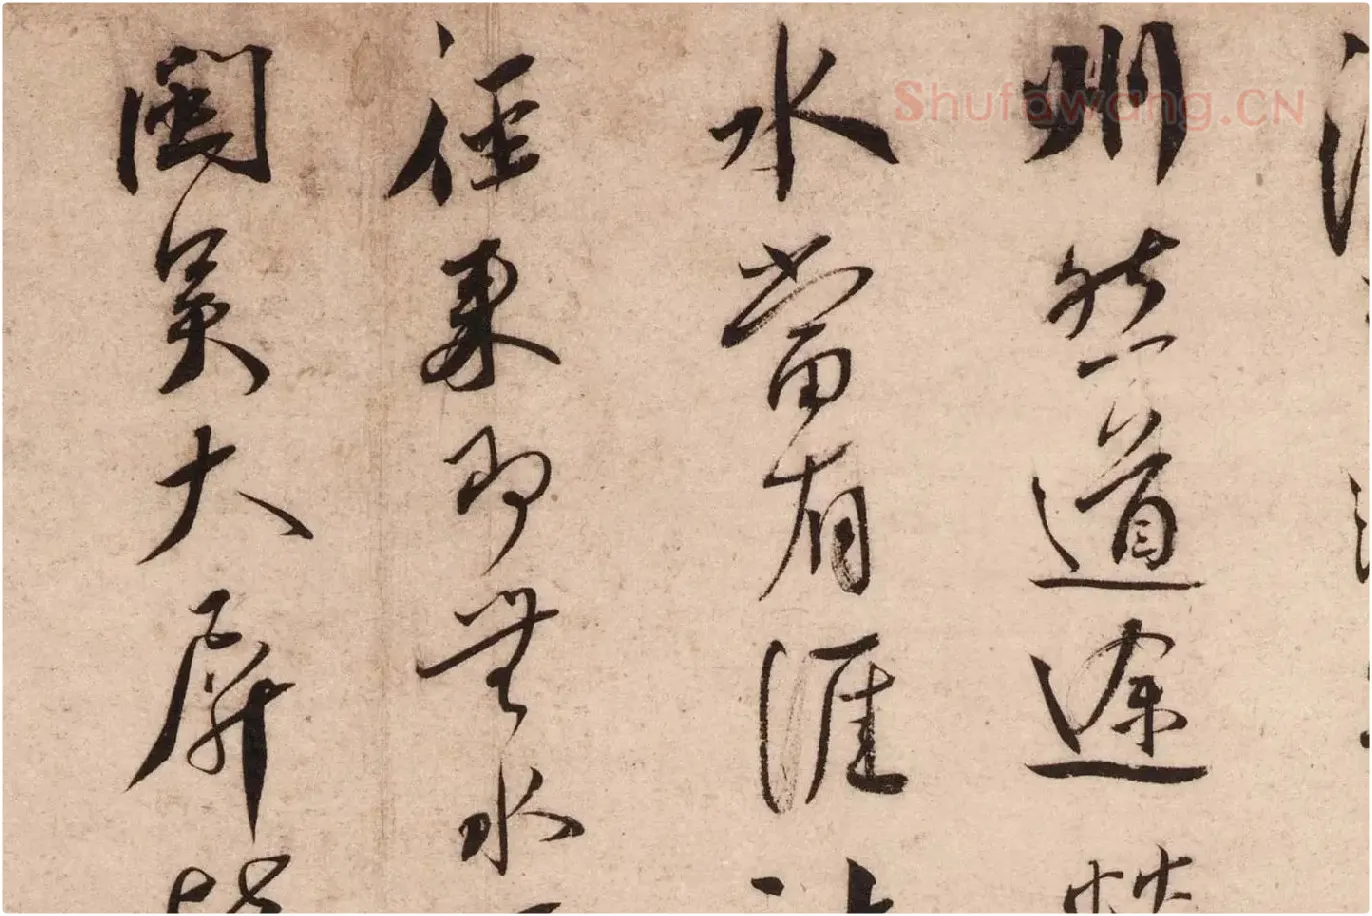 Shufawang.CN
州然道途
水當有涯
徑來即無水
閩吳大屏